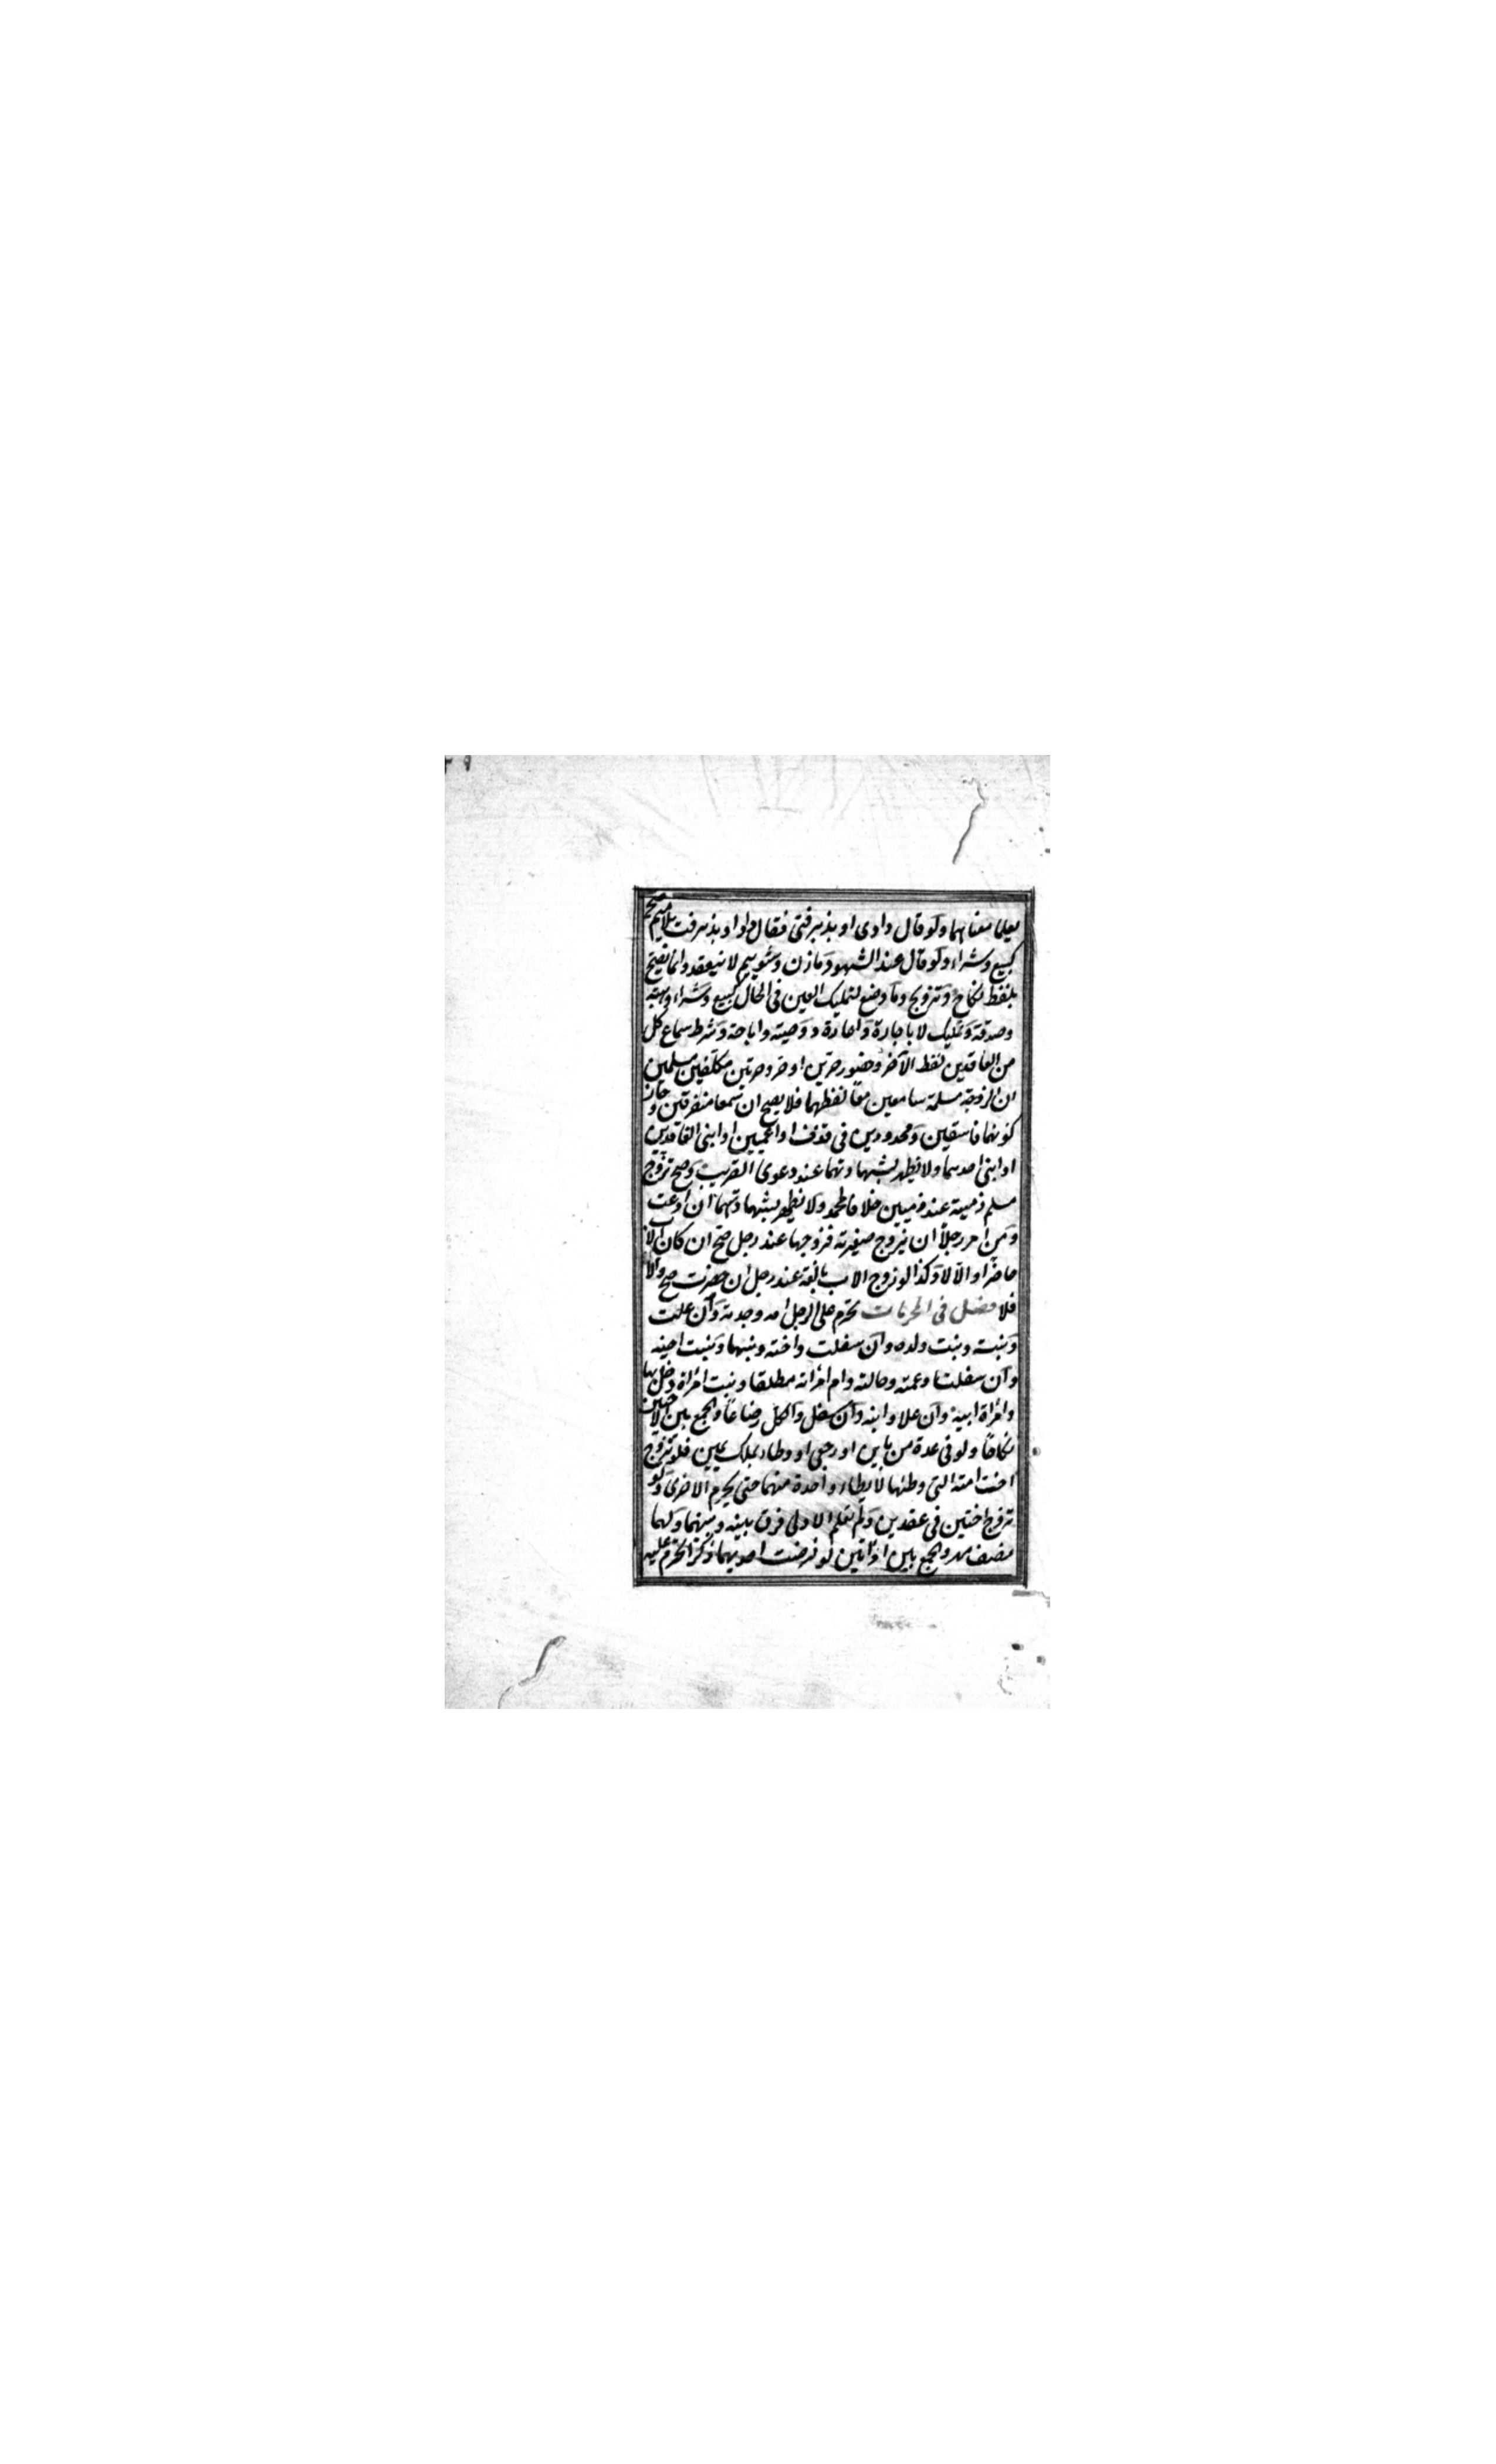 يعلما معناهما ولو قال دادى او پذيرفتى فقال داد او پذيرفت بلا ميم صح
كبيع وشراء ولو قال عند الشهود مازن وشوييم لا ينعقد وانما يصح
بلفظ نكاح وتزويج وما وضع لتمليك العين فى الحال كبيع وشراء وهبة
وصدقة وتمليك لا باجارة واعارة ووصية واباحة وشرط سماع كل
من العاقدين لفظ الآخر وحضور حرين او حر وحرتين مكلفين مسلمين
ان الزوجة مسلمة سامعين معا لفظهما فلا يصح ان سمعا متفرقين وجاز
كونهما فاسقين ومحدودين فى قذف او اعميين او ابنى العاقدين
او ابنى احدهما ولا يظهر بشهادتهما عند دعوى القريب وصح تزوج
مسلم ذمية عند ذميين خلافا لمحمد ولا يظهر بشهادتهما ان ادعت
ومن امر رجلا ان يزوج صغيرته فزوجها عند رجل صح ان كان الاب
حاضرا والا لا وكذا لو زوج الاب بالغة عند رجل ان حضرت صح والا
فلا فصل فى المحرمات تحرم على الرجل امه وجدته وان علت
وبنته وبنت ولده وان سفلت واخته وبنتها وبنت اخيه
وان سفلتا وعمته وخالته وام امرأته مطلقا وبنت امرأة دخل بها
وامرأة ابيه وان علا وابنه وان سفل والكل رضاعا والجمع بين الاختين
نكاحا ولو فى عدة من باين او رجعى او وطاء بملك يمين فلو تزوج
اخت امته التى وطئها لا يطاء واحدة منهما حتى يحرم الاخرى ولو
تزوج اختين فى عقدين ولم تعلم الاولى فرق بينه وبينهما ولهما
نصف مهر والجمع بين امرأتين لو فرضت احديهما ذكرا تحرم عليه